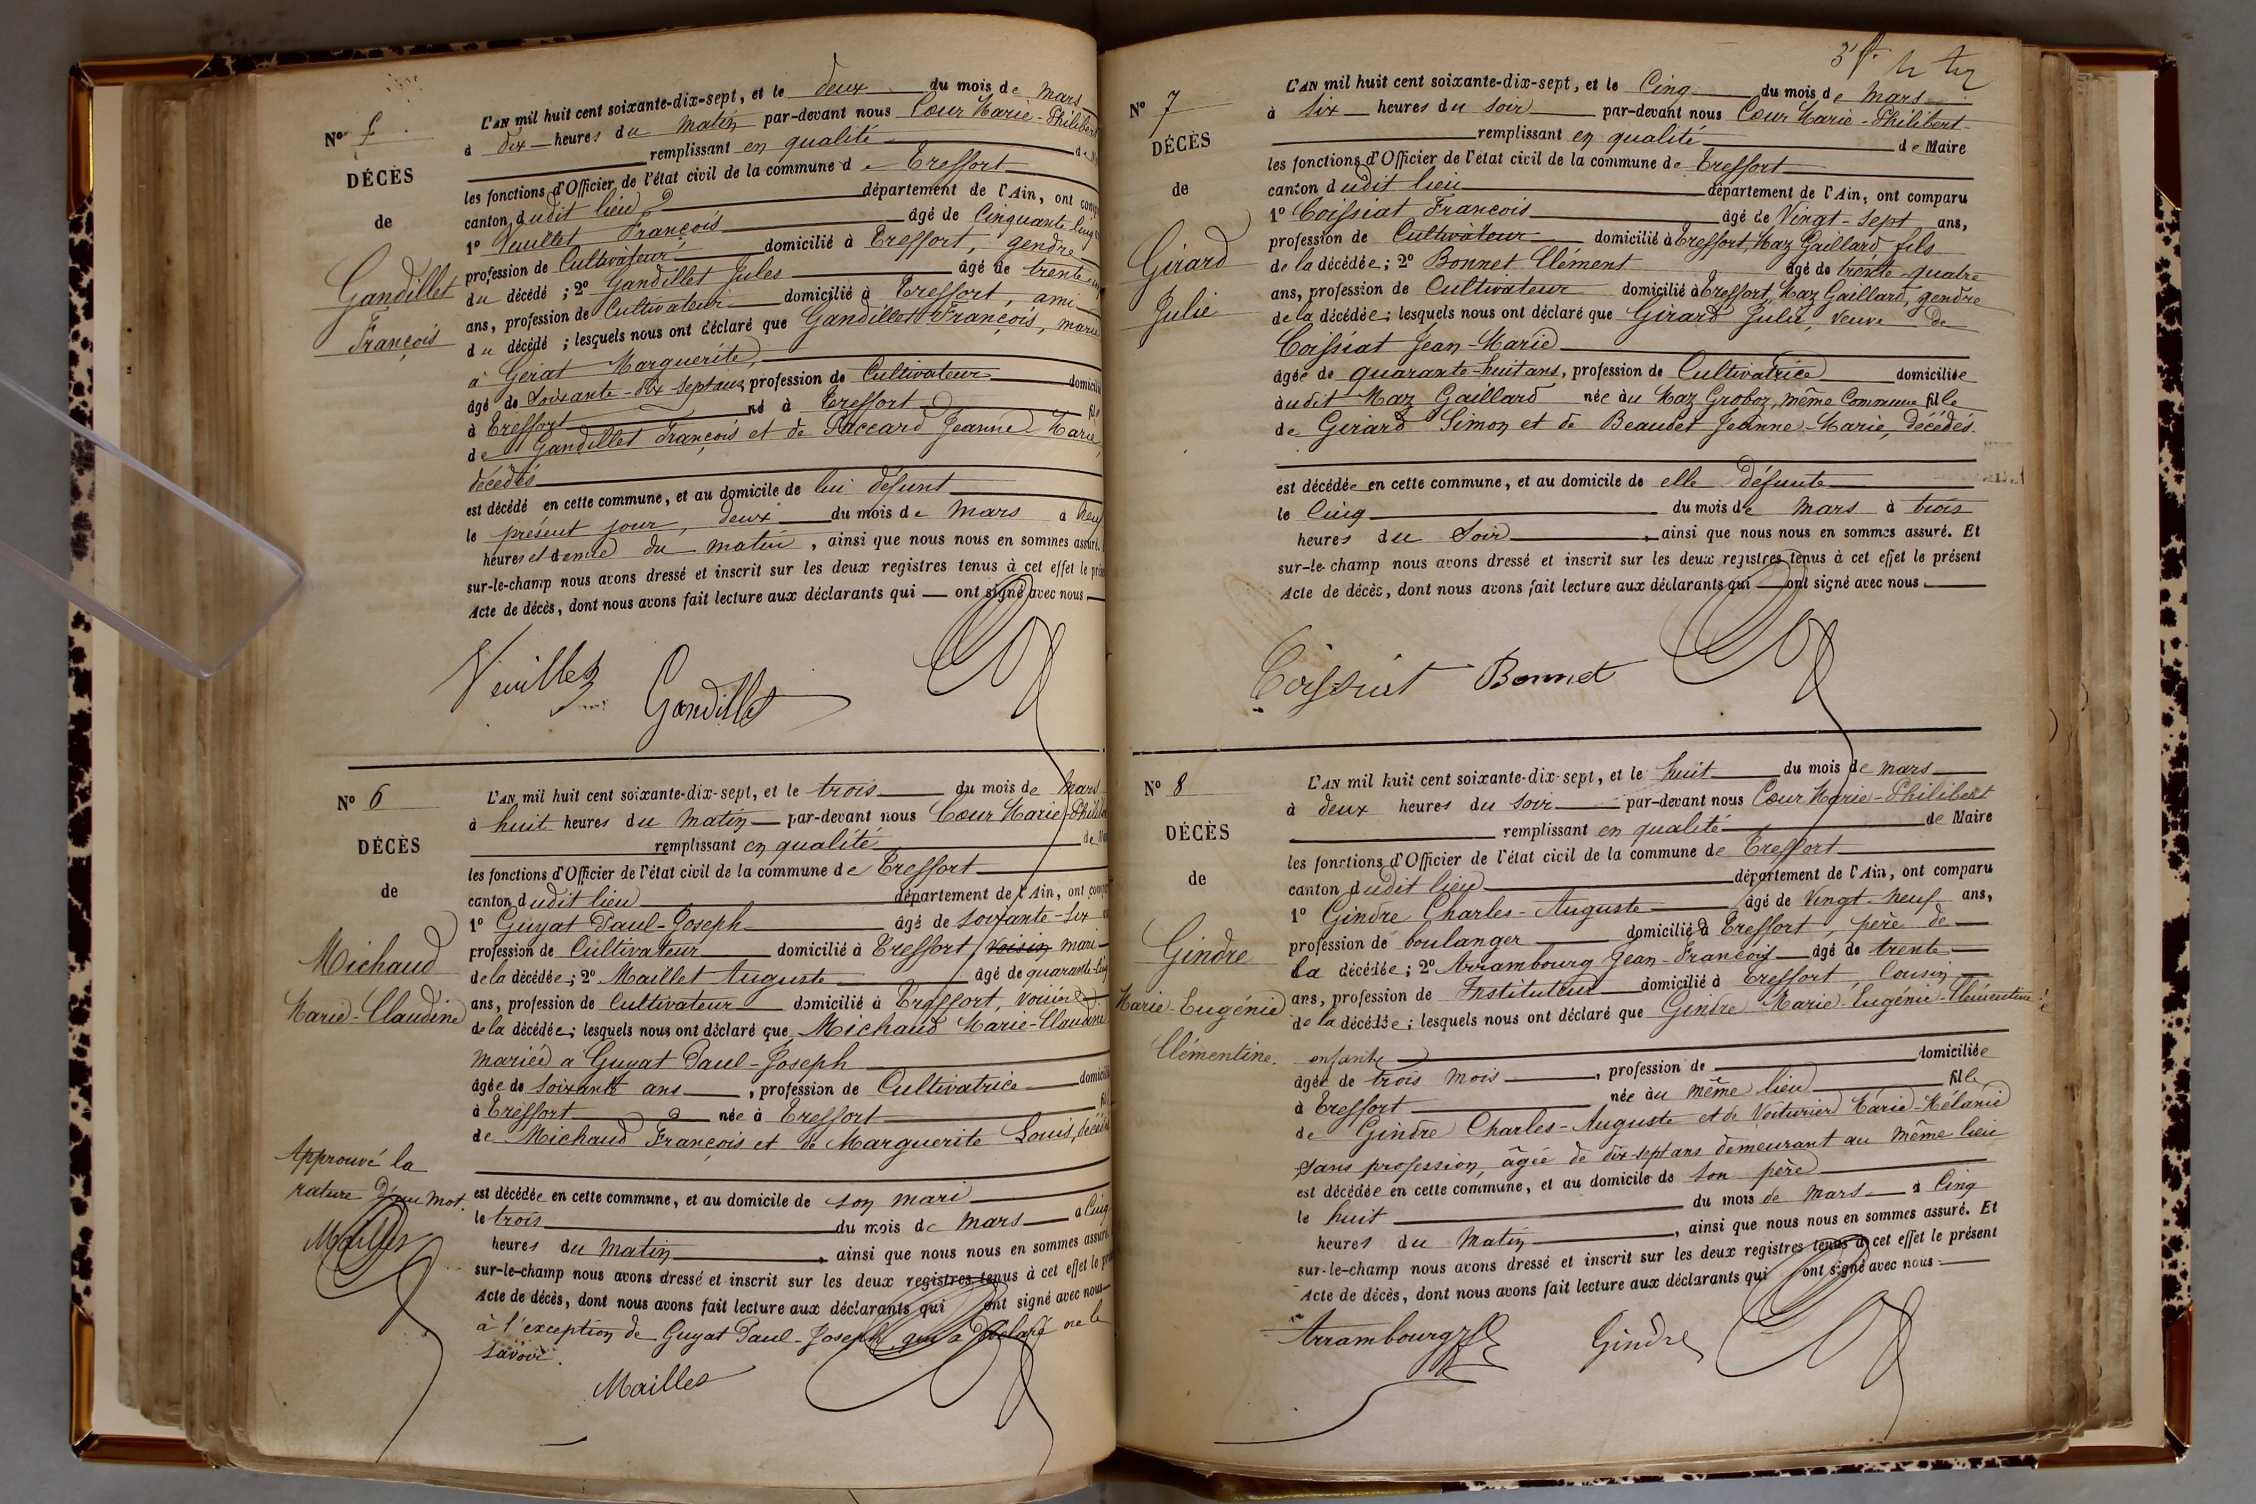 Nº 5
DÉCÈS
de
Gandillet
François
L'AN mil huit cent soixante-dix-sept, et le deux du mois de mars
à dix heures du matin par-devant nous Cœur Marie-Philibert
remplissant en qualité de
les fonctions d'Officier de l'état civil de la commune de Treffort
canton dudit lieu département de l'Ain, ont
1º Veuillet François âgé de Cinquante
profession de Cultivateur domicilié à Treffort, gendre
du décédé ; 2º Gandillet Jules âgé de trente
ans, profession de Cultivateur domicilié à Treffort, ami
du décédé ; lesquels nous ont déclaré que Gandillet François, marié
à Gerat Marguerite,
âgé de soixante-dix-sept ans, profession de Cultivateur domicilié
à Treffort né à Treffort fils
de Gandillet François et de Paccard Jeanne-Marie,
décédés
est décédé en cette commune, et au domicile de lui défunt
le présent jour, deux du mois de mars à
heures et demie du matin, ainsi que nous nous en sommes assuré.
sur-le-champ nous avons dressé et inscrit sur les deux registres tenus à cet effet le
Acte de décès, dont nous avons fait lecture aux déclarants qui ont signé avec nous
Veuillet Gandillet
Nº 6
DÉCÈS
de
Michaud
Marie-Claudine
Approuvé la
rature d'un mot.
Maillet
L'AN mil huit cent soixante-dix-sept, et le trois du mois de mars
à huit heures du matin par-devant nous Cœur Marie-Philibert
remplissant en qualité de
les fonctions d'Officier de l'état civil de la commune de Treffort
canton dudit lieu département de l'Ain, ont
1º Guyat Paul-Joseph âgé de soixante-six
profession de Cultivateur domicilié à Treffort, voisin mari
de la décédée ; 2º Maillet Auguste âgé de quarante-cinq
ans, profession de Cultivateur domicilié à Treffort, voisin
de la décédée ; lesquels nous ont déclaré que Michaud Marie-Claudine
mariée à Guyat Paul-Joseph
âgée de soixante ans, profession de Cultivatrice domiciliée
à Treffort née à Treffort
de Michaud François et de Marguerite Louis, décédés
est décédée en cette commune, et au domicile de son mari
le trois du mois de mars à Cinq
heures du matin, ainsi que nous nous en sommes assuré.
sur-le-champ nous avons dressé et inscrit sur les deux registres tenus à cet effet le
Acte de décès, dont nous avons fait lecture aux déclarants qui ont signé avec nous
à l'exception de Guyat Paul-Joseph qui a déclaré ne le
savoir.
Maillet
Nº 7
DÉCÈS
de
Girard
Julie
L'AN mil huit cent soixante-dix-sept, et le Cinq du mois de mars
à six heures du soir par-devant nous Cœur Marie-Philibert
remplissant en qualité de Maire
les fonctions d'Officier de l'état civil de la commune de Treffort
canton dudit lieu département de l'Ain, ont comparu
1º Coissiat François âgé de Vingt-sept ans,
profession de Cultivateur domicilié à Treffort, Maz Gaillard, fils
de la décédée ; 2º Bonnet Clément âgé de trente-quatre
ans, profession de Cultivateur domicilié à Treffort, Maz Gaillard, gendre
de la décédée ; lesquels nous ont déclaré que Girard Julie, veuve de
Coissiat Jean-Marie
âgée de quarante-huit ans, profession de Cultivatrice domiciliée
audit Maz Gaillard née au Maz Groboz, même Commune fille
de Girard Simon et de Beaudet Jeanne-Marie, décédés.
est décédée en cette commune, et au domicile de elle défunte
le Cinq du mois de mars à trois
heures du soir, ainsi que nous nous en sommes assuré. Et
sur-le-champ nous avons dressé et inscrit sur les deux registres tenus à cet effet le présent
Acte de décès, dont nous avons fait lecture aux déclarants qui ont signé avec nous
Coissiat Bonnet
Nº 8
DÉCÈS
de
Gindre
Marie-Eugénie
Clémentine.
L'AN mil huit cent soixante-dix-sept, et le huit du mois de mars
à deux heures du soir par-devant nous Cœur Marie-Philibert
remplissant en qualité de Maire
les fonctions d'Officier de l'état civil de la commune de Treffort
canton dudit lieu département de l'Ain, ont comparu
1º Gindre Charles-Auguste âgé de Vingt-neuf ans,
profession de boulanger domicilié à Treffort, père de
la décédée ; 2º Arrambourg Jean-François âgé de trente
ans, profession de Instituteur domicilié à Treffort, Cousin
de la décédée ; lesquels nous ont déclaré que Gindre Marie-Eugénie-Clémentine
enfant
âgée de trois mois, profession de domiciliée
à Treffort née au même lieu fille
de Gindre Charles-Auguste et de Voiturier Marie-Mélanie
sans profession, âgée de dix-sept ans demeurant au même lieu
est décédée en cette commune, et au domicile de son père
le huit du mois de mars à Cinq
heures du matin, ainsi que nous nous en sommes assuré. Et
sur-le-champ nous avons dressé et inscrit sur les deux registres tenus à cet effet le présent
Acte de décès, dont nous avons fait lecture aux déclarants qui ont signé avec nous
Arrambourg Gindre